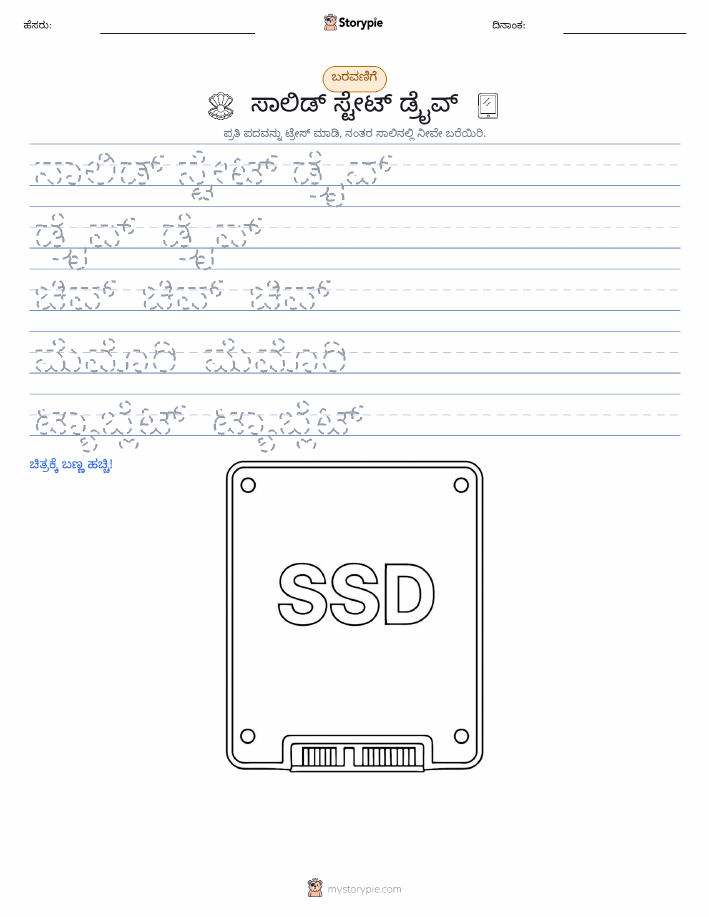 ಹೆಸರು:
Storypie
ದಿನಾಂಕ:
ಬರವಣಿಗೆ
ಸಾಲಿಡ್ ಸ್ಟೇಟ್ ಡ್ರೈವ್
ಪ್ರತಿ ಪದವನ್ನು ಟ್ರೇಸ್ ಮಾಡಿ, ನಂತರ ಸಾಲಿನಲ್ಲಿ ನೀವೇ ಬರೆಯಿರಿ.
ಸಾಲಿಡ್ ಸ್ಟೇಟ್ ಡ್ರೈವ್
ಡ್ರೈವ್ ಡ್ರೈವ್
ಚಿಪ್ ಚಿಪ್ ಚಿಪ್
ಮೆಮೊರಿ ಮೆಮೊರಿ
ಟ್ಯಾಬ್ಲೆಟ್ ಟ್ಯಾಬ್ಲೆಟ್
ಚಿತ್ರಕ್ಕೆ ಬಣ್ಣ ಹಚ್ಚಿ!
SSD
mystorypie.com